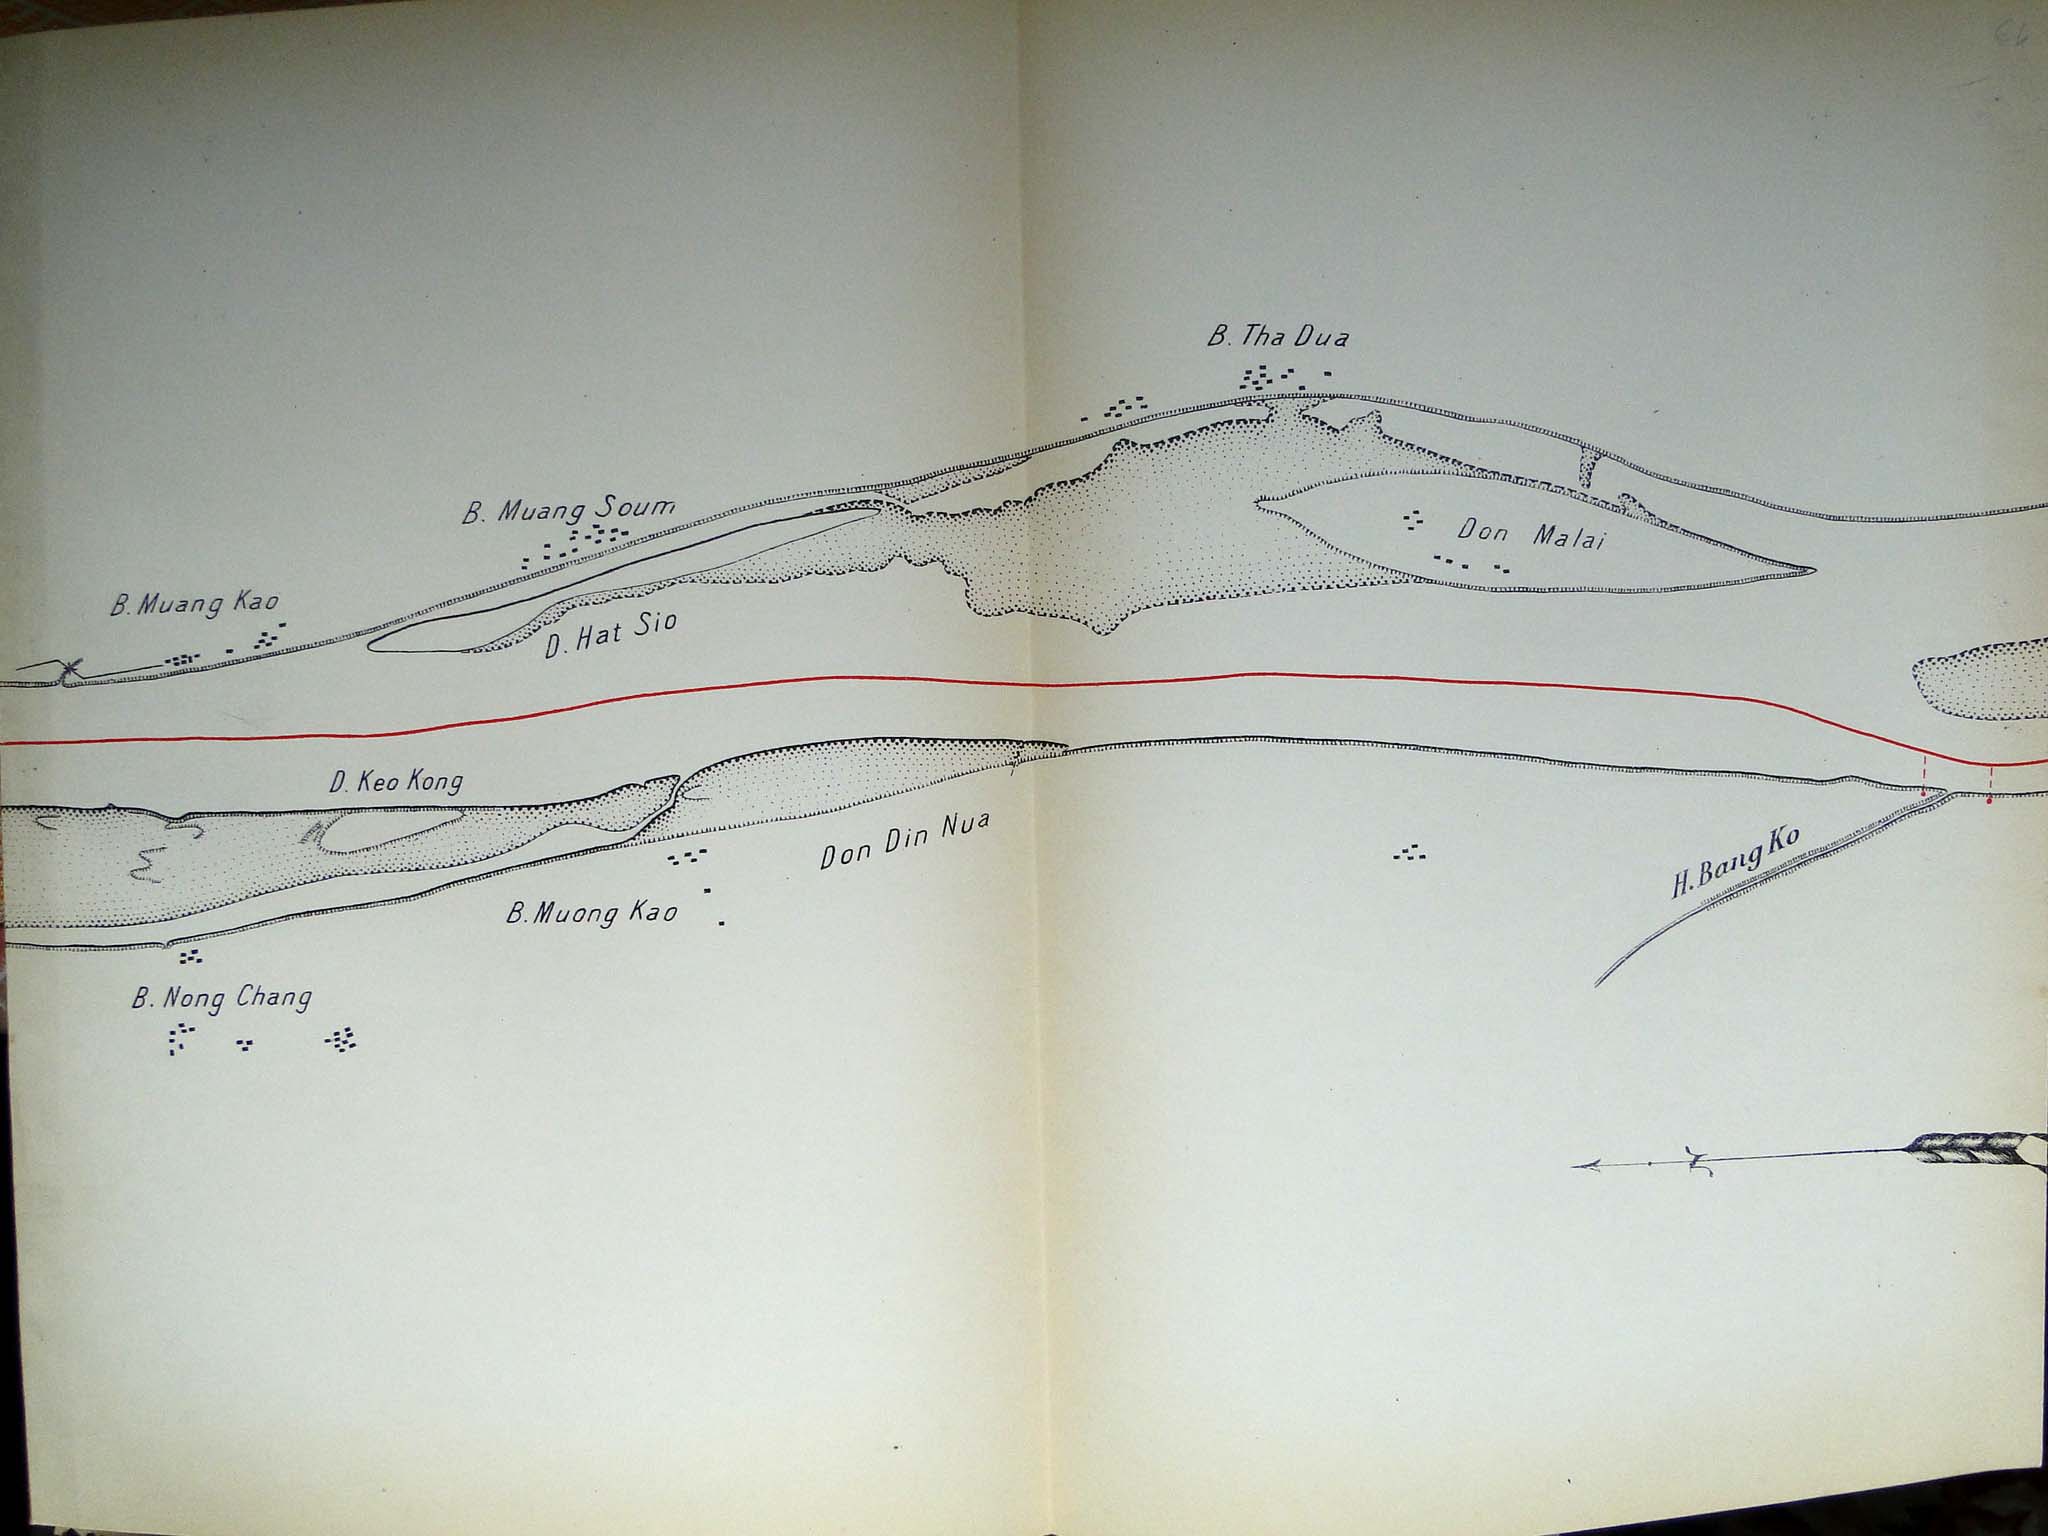 B. Tha Dua
B. Muang Soum
Don Malai
B. Muang Kao
D. Hat Sio
D. Keo Kong
Don Din Nua
H. Bang Ko
B. Muong Kao
B. Nong Chang